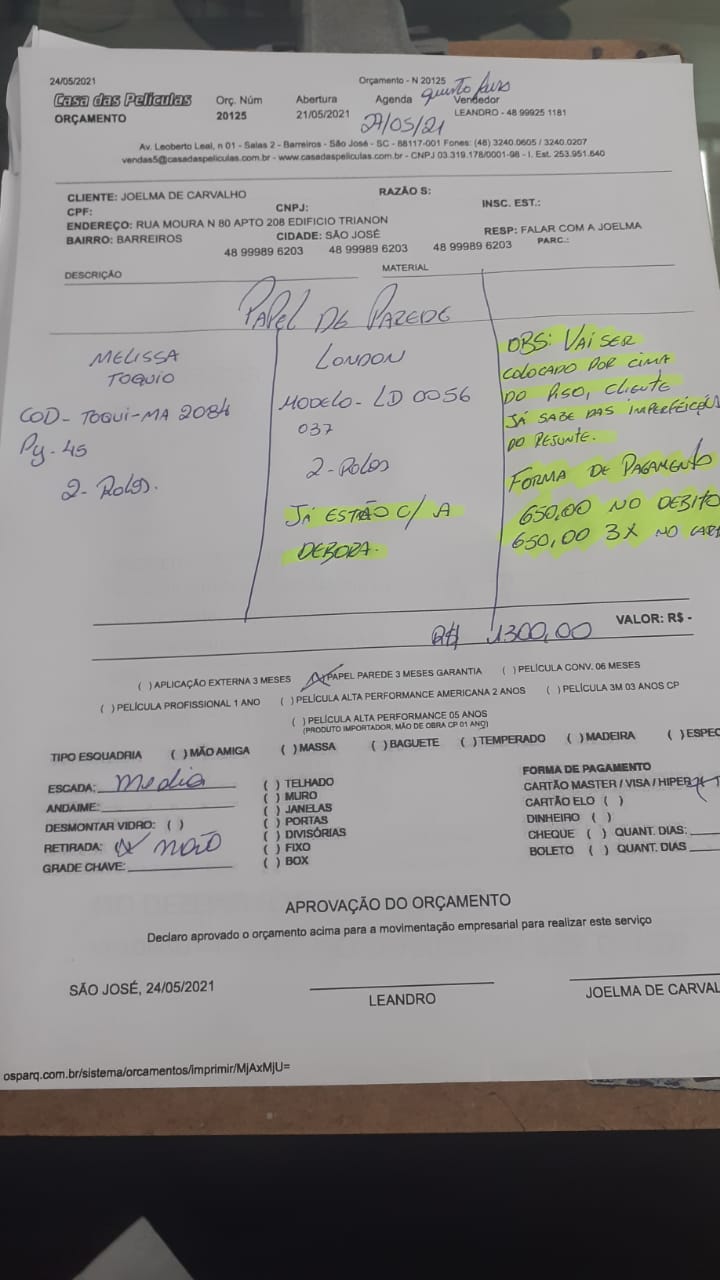 24/05/2021
Orçamento - N 20125
Casa das Películas
ORÇAMENTO
Orç. Núm
20125
Abertura
21/05/2021
Agenda
27/05/21
Vendedor
LEANDRO - 48 99925 1181
Av. Leoberto Leal, n 01 - Salas 2 - Barreiros - São José - SC - 88117-001 Fones: (48) 3240.0605 / 3240.0207
vendas5@casadaspeliculas.com.br - www.casadaspeliculas.com.br - CNPJ 03.319.178/0001-98 - I. Est. 253.951.640
CLIENTE: JOELMA DE CARVALHO RAZÃO S:
CPF: CNPJ: INSC. EST.:
ENDEREÇO: RUA MOURA N 80 APTO 208 EDIFICIO TRIANON
BAIRRO: BARREIROS CIDADE: SÃO JOSÉ RESP: FALAR COM A JOELMA
48 99989 6203 48 99989 6203 48 99989 6203 PARC.:
DESCRIÇÃO MATERIAL
PAPEL DE PAREDE
MELISSA
TOQUIO
COD - TOQUI-MA 2084
Py - 45
2 - ROLOS.
LONDON
MODELO - LD 0056
037
2 - ROLOS
JÁ ESTÃO C/ A
DEBORA.
OBS: VAI SER
COLOCADO POR CIMA
DO PISO, CLIENTE
JÁ SABE DAS IMPERFEIÇÕES
DO
FORMA DE PAGAMENTO
650,00 NO DEBITO
650,00 3X NO
R$ 1300,00 VALOR: R$ -
( ) APLICAÇÃO EXTERNA 3 MESES (X) PAPEL PAREDE 3 MESES GARANTIA ( ) PELÍCULA CONV. 06 MESES
( ) PELÍCULA PROFISSIONAL 1 ANO ( ) PELÍCULA ALTA PERFORMANCE AMERICANA 2 ANOS ( ) PELÍCULA 3M 03 ANOS CP
( ) PELÍCULA ALTA PERFORMANCE 05 ANOS
(PRODUTO IMPORTADOR, MÃO DE OBRA CP 01 ANO)
TIPO ESQUADRIA ( ) MÃO AMIGA ( ) MASSA ( ) BAGUETE ( ) TEMPERADO ( ) MADEIRA ( ) ESPEC
ESCADA: Media
ANDAIME:
DESMONTAR VIDRO: ( )
RETIRADA: (X) não
GRADE CHAVE:
( ) TELHADO
( ) MURO
( ) JANELAS
( ) PORTAS
( ) DIVISÓRIAS
( ) FIXO
( ) BOX
FORMA DE PAGAMENTO
CARTÃO MASTER / VISA / HIPER
CARTÃO ELO ( )
DINHEIRO ( )
CHEQUE ( ) QUANT. DIAS:
BOLETO ( ) QUANT. DIAS
APROVAÇÃO DO ORÇAMENTO
Declaro aprovado o orçamento acima para a movimentação empresarial para realizar este serviço
SÃO JOSÉ, 24/05/2021
LEANDRO
JOELMA DE CARVAL
osparq.com.br/sistema/orcamentos/imprimir/MjAxMjU=